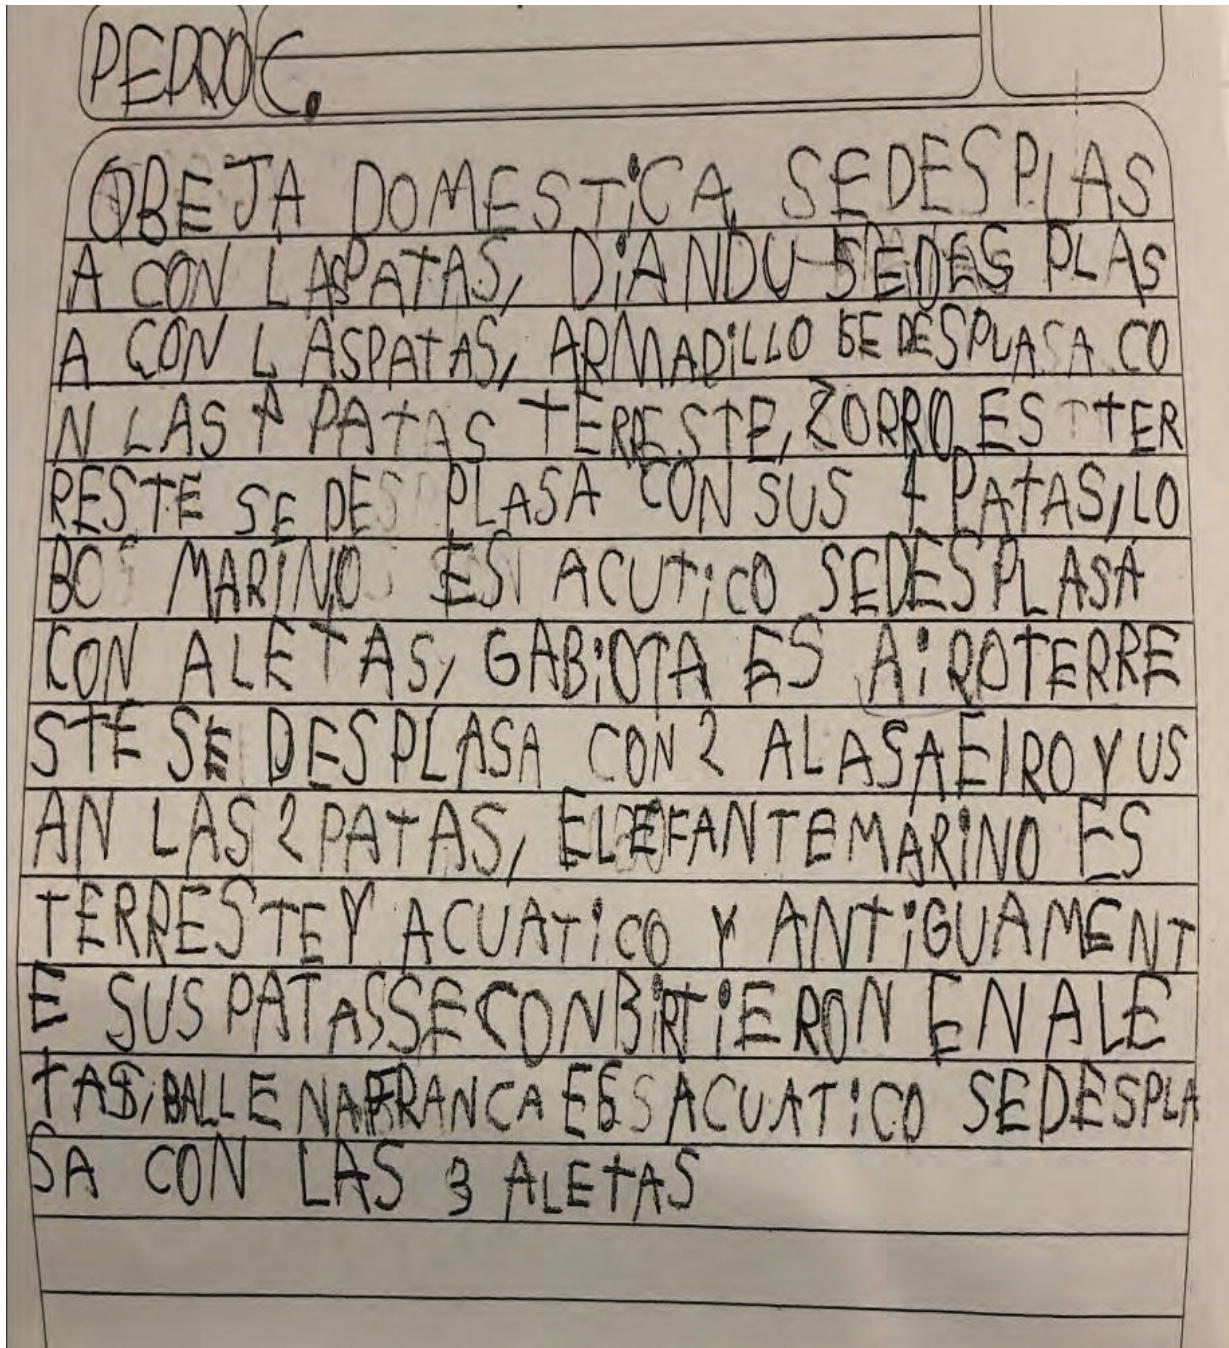 PEDRO C.
OBEJA DOMESTiCA, SEDESPLAS
A CON LASPATAS, DiANDU SEDES PLAS
A CON L ASPATAS, ARMADiLLO SE DESPLASA CO
N LAS 4 PATAS TERRESTE, ZORRO ES TER
RESTE SE DES PLASA CON SUS 4 PATAS, LO
BO MARINO ES ACUTiCO SEDESPLASA
CON ALETAS, GABiOTA ES AiROTERRE
STE SE DESPLASA CON 2 ALASAEIRO Y US
AN LAS 2 PATAS, ELEFANTEMARiNO ES
TERRESTEY ACUATiCO Y ANTiGUAMENT
E SUS PATASSECONBiRTiERON EN ALE
TAS, BALLENAFRANCA ES ACUATiCO SEDESPLA
SA CON LAS 3 ALETAS